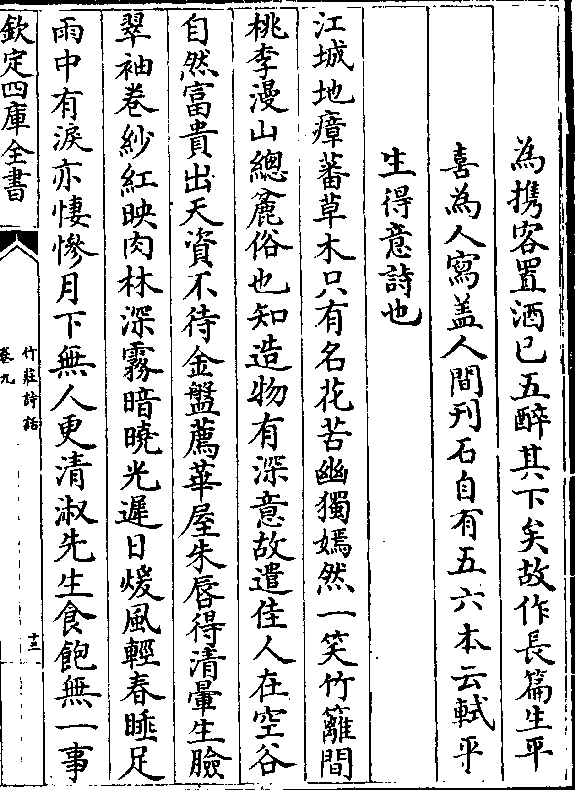 為攜客置酒已五醉其下矣故作長篇生平
喜為人寫盖人間刋石自有五六本云軾平
生得意詩也
江城地瘴蕃草木只有名花苦幽獨嫣然一笑竹籬間
桃李漫山總麄俗也知造物有深意故遣佳人在空谷
自然富貴出天資不待金盤薦華屋朱唇得清暈生臉
翠袖卷紗紅映肉林深霧暗曉光遲日煖風輕春睡足
雨中有淚亦悽慘月下無人更清淑先生食飽無一事
欽定四庫全書
竹莊詩話
卷九
十三